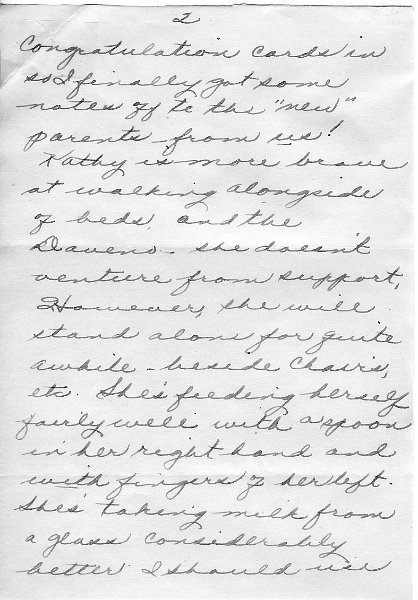 2
Congratulation cards in
so I finally got some
notes off to the "new"
parents from us!
Kathy is more brave
at walking alongside
of beds, and the
Daveno - she doesn't
venture from support,
However, she will
stand alone for quite
awhile - beside chairs,
etc. She's feeding herself
fairly well with a spoon
in her right hand and
with fingers of her left.
She's taking milk from
a glass considerably
better. I should use